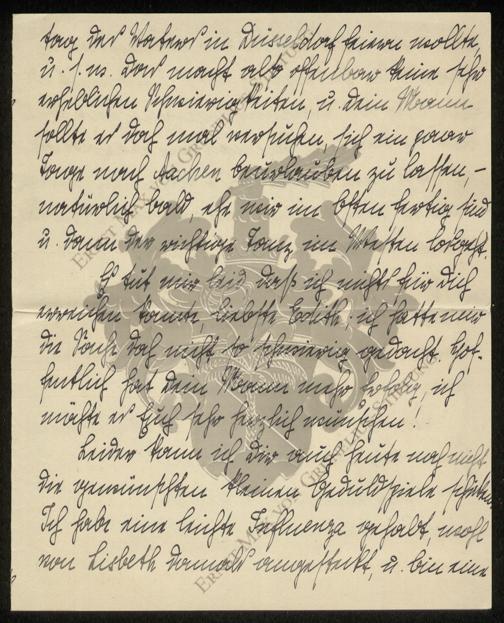 tag des Vaters in Düsseldorf feiern wollte
u. s. w. Das macht also offenbar keine sehr
erheblichen Schwierigkeiten, u. dein Mann
sollte es doch mal versuchen, sich ein paar
Tage nach Aachen beurlauben zu lassen, –
natürlich bald, ehe wir im Osten fertig sind
u. dann der richtige Tanz im Westen losgeht.
Es tut mir leid, daß ich nichts für Dich
erreichen konnte, liebste Edith, ich hatte mir
die Sache doch nicht so schwierig gedacht. Hof-
fentlich hat dein Mann mehr Erfolg, ich
möchte es Euch sehr herzlich wünschen!
Leider kann ich Dir auch heute noch nicht
die gewünschten kleinen Geduldspiele schicken.
Ich habe eine leichte Influenza gehabt, wohl
von Lisbeth damals angesteckt, u. bin eine